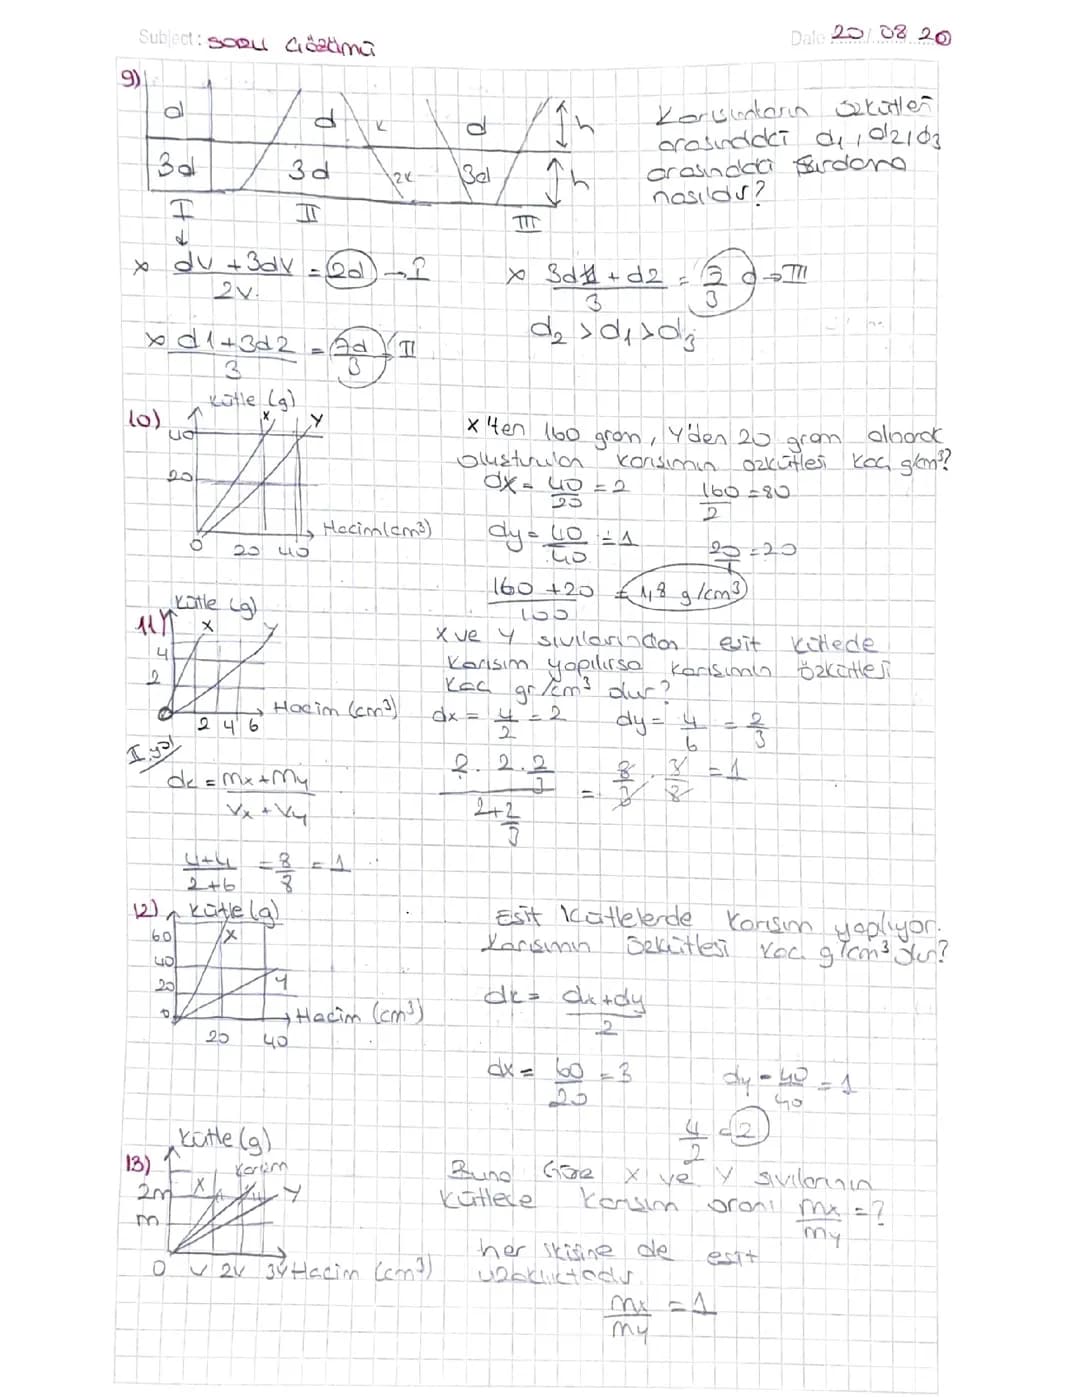 Subject: SORU ÇÖZÜMÜ
Date 20/08 20
9)
d d K d h
3d 3d 2K 3d h
I II III
Karışımların özkütleri
arasındaki d1, d2, d3
arasındaki
nasıldır?
x dV + 3dV / 2V. = 2d → I
x 3d1 + d2 / 3 = 7/3 d → III
d2 > d1 > d3
x d1 + 3d2 / 3 = 7d/3 II
10) Kütle (g)
X Y
40
20
0 20 40 Hacim (cm³)
X'ten 160 gram, Y'den 20 gram alınarak
oluşturulan karışımın özkütlesi kaç g/cm³?
dx = 40/20 = 2 160/2 = 80
dy = 40/40 = 1 20/1 = 20
160 + 20 / 100 = 1,8 g/cm³
11) Kütle (g)
X Y
4
2
0 2 4 6 Hacim (cm³)
X ve Y sıvılarından eşit kütlede
karışım yapılırsa karışımın özkütlesi
kaç gr/cm³ dur?
dx = 4/2 = 2 dy = 4/6 = 2/3
2. 2. 2/3 / 2+2/3 = 8/3 . 3/8 = 1
II. yol
dk = mx + my / Vx + Vy
4+4 / 2+6 = 8/8 = 1
12) Kütle (g)
60 X
40
20 Y
0 20 40 Hacim (cm³)
Eşit kütlelerde karışım yapılıyor.
Karışımın özkütlesi kaç g/cm³ dur?
dk = dx + dy / 2
dx = 60/20 = 3 dy = 40/40 = 1
4/2 = 2
13) Kütle (g)
X karışım Y
2m
m
0 V 2V 3V Hacim (cm³)
Buna Göre X ve Y sıvılarının
kütlece karışım oranı mx/my = ?
her ikisine de eşit
uzaklıktadır.
mx/my = 1